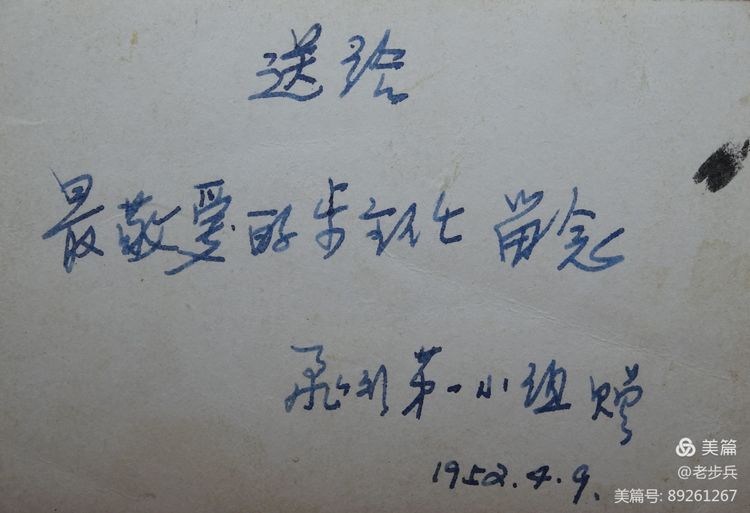 送给
最敬爱的步主任 留念
第一小组 赠
1952.4.9.
美篇
@老步兵
美篇号: 89261267